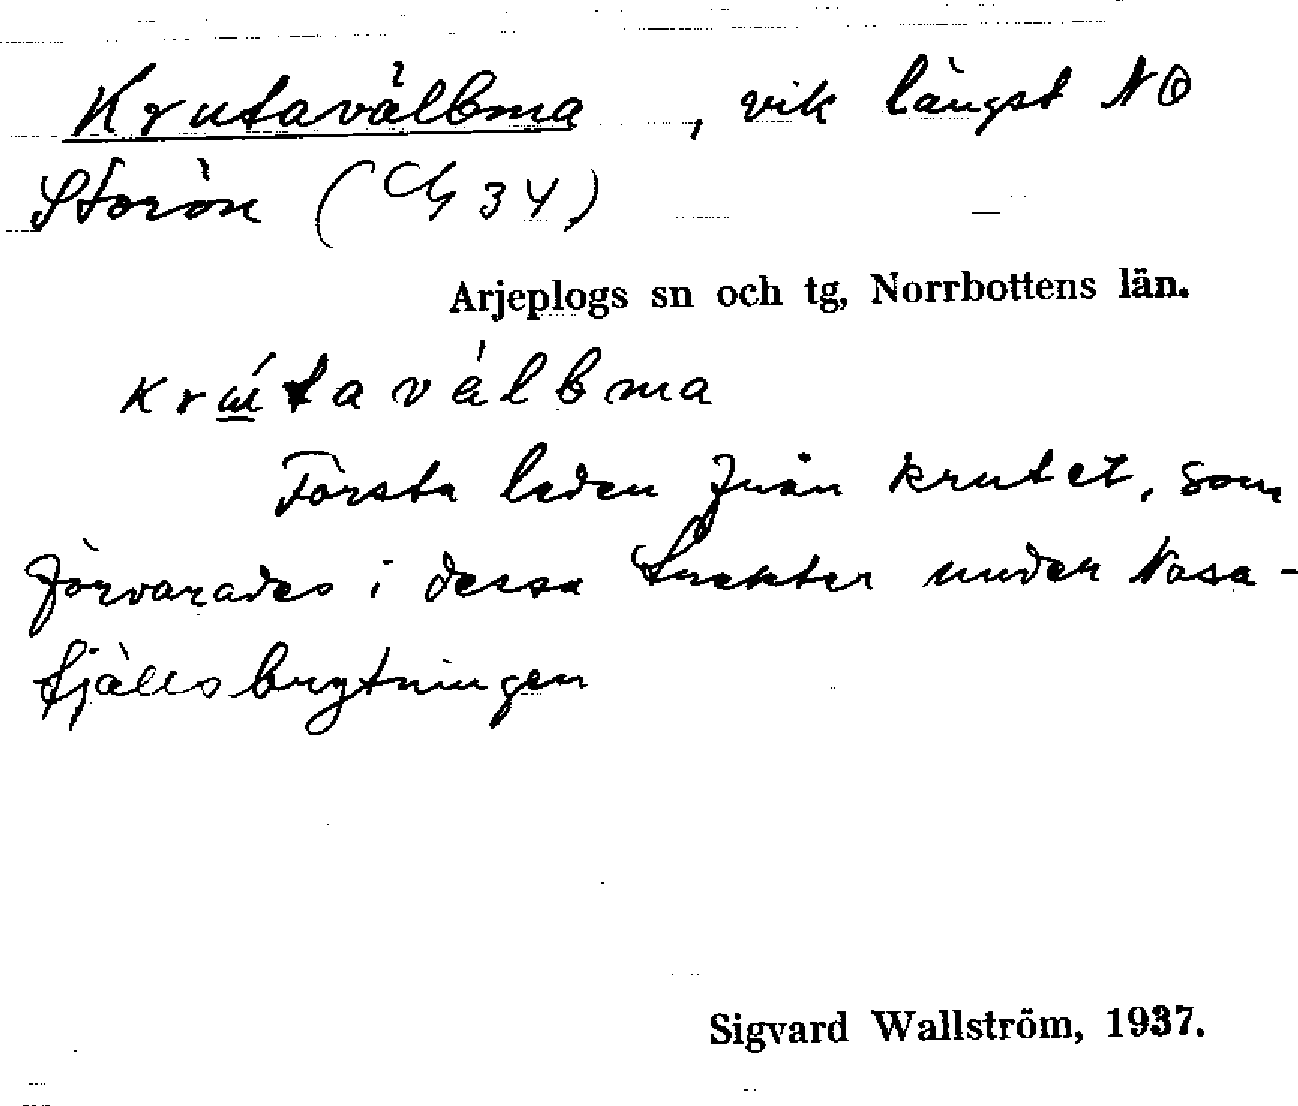 Krutavälbma, vik längst NO
Storön (Ch 34)
Arjeplogs sn och tg, Norrbottens län.
krútaválbma
Första leden från krutet, som
förvarades i dessa trakter under Nasa-
fjällsbrytningen
Sigvard Wallström, 1937.